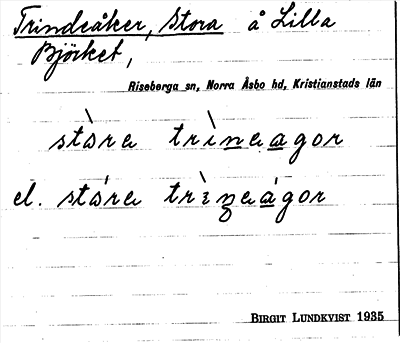 Trindeåker, Stora å Lilla
Björket,
Riseberga sn, Norra Åsbo hd, Kristianstads län
stòra trìneagor
el. stóra trìneágor
BIRGIT LUNDKVIST 1935